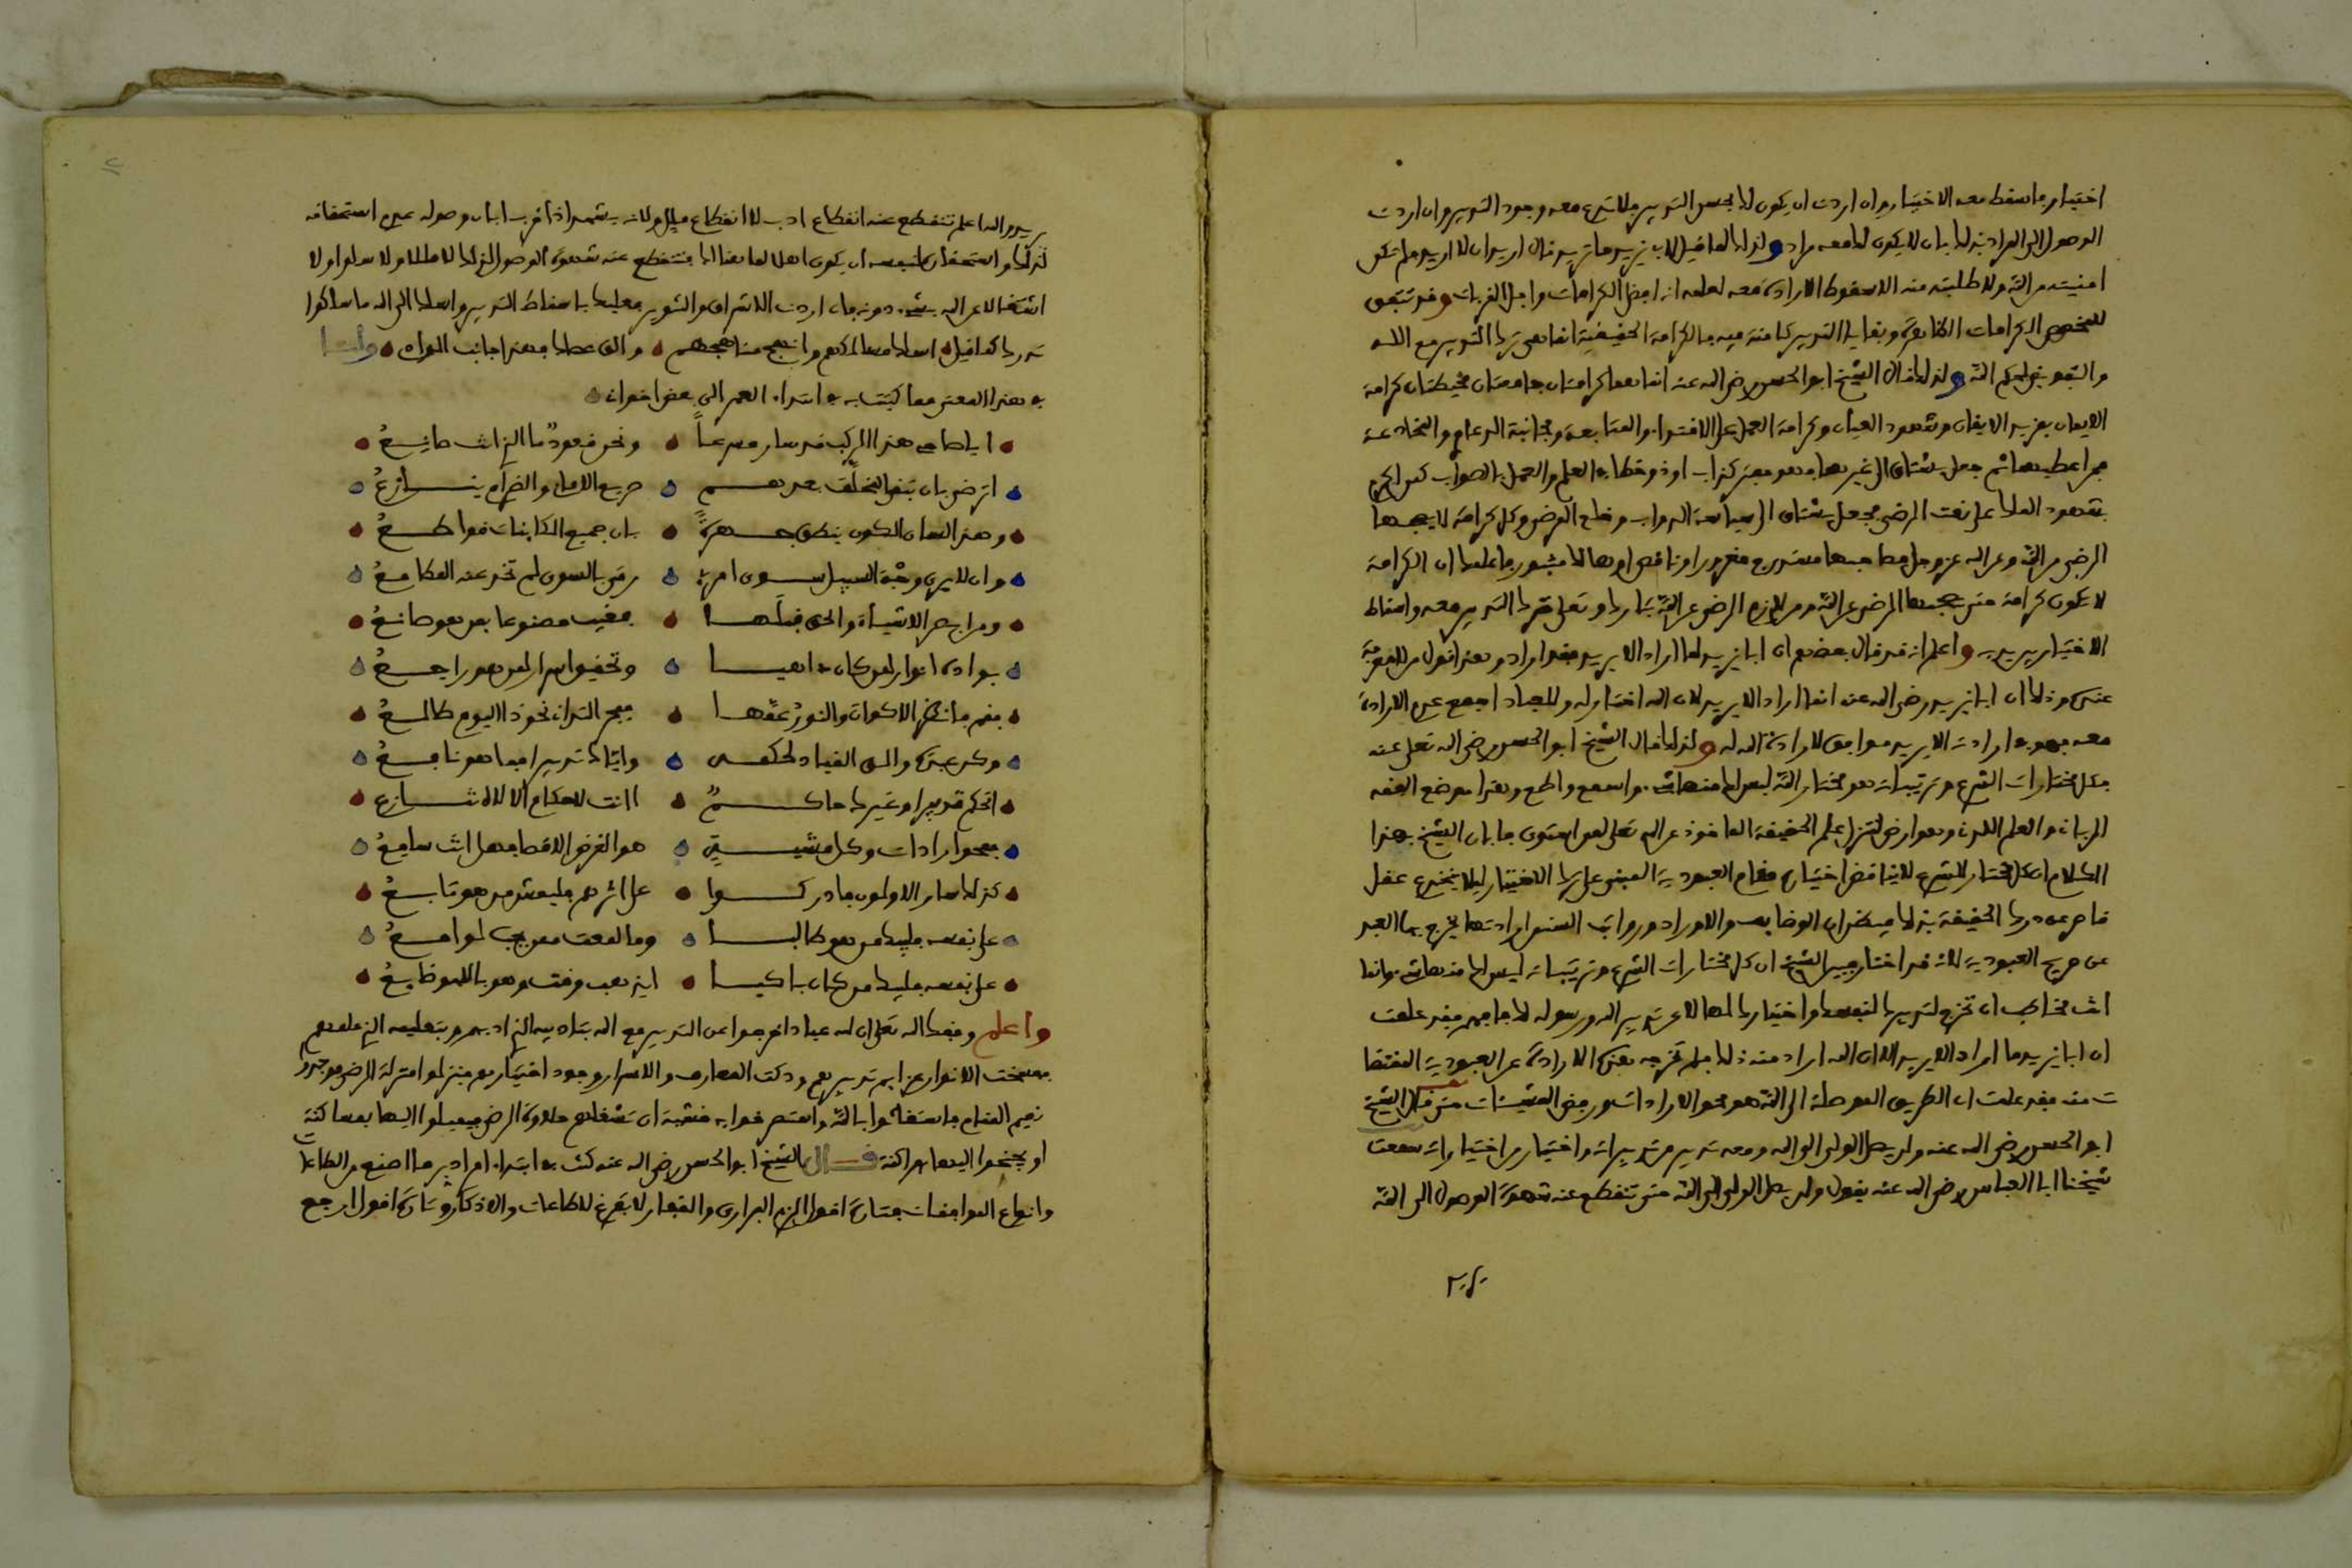 اختيار فاسقط معه الاختيار وان اردت ان يكون لك بحسن التدبير فلا تدع معه وجود التدبير وان اردت
الوصول الى المراد فذلك بان لا يكون لك معه مراد ولذلك لما قيل لابي يزيد ما تريد فقال اريد ان لا اريد فلم تكن
امنيته من الله ولا طلبته منه الا سقوط الارادة معه لعلمه انه افضل الكرامات واجل القربات وقد تتفق
للمخصص الكرامات الظاهرة وبقايا التدبير كامنة فيه فالكرامة الحقيقية انما هي ترك التدبير مع الله
والتفويض لحكم الله ولذلك قال الشيخ ابو الحسن رضي الله عنه انما هما كرامتان جامعتان محيطتان كرامة
الايمان بمزيد الايقان وشهود العيان وكرامة العمل على الاقتداء والمتابعة ومجانبة الدعاوي والمخادعة
فمن اعطيهما ثم جعل يشتاق الى غيرهما فهو مفتر كذاب او ذو خطا في العلم والعمل بالصواب كمن اكرم
بشهود الملك على نعت الرضى فجعل يشتاق الى سياسة الدواب وخلع الرضى وكل كرامة لا يصحبها
الرضى من الله وعن الله عز وجل فصاحبها مستدرج مغرور او ناقص او هالك مثبور فاعلم ان الكرامة
لا تكون كرامة حتى يصحبها الرضى عن الله ومن لازم الرضى عن الله تبارك وتعلى ترك التدبير معه واسقاط
الاختيار بين يديه واعلم انه قد قال بعضهم ان ابا يزيد لما اراد ان لا يريد فقد اراد وهذا قول من لا معرفة
عنده وذلك ان ابا يزيد رضي الله عنه انما اراد ان لا يريد لان الله اختار له وللعباد اجمع عدم الارادة
معه فهو في ارادته ان لا يريد موافق لارادة الله له ولذلك قال الشيخ ابو الحسن رضي الله تعلى عنه
وكل مختارات الشرع وترتيباته هو مختار الله ليس لك منه شيء واسمع واطع وهذا موضع الفقه
الرباني والعلم اللدني وهو ارض لتنزل علم الحقيقة الماخوذ عن الله تعلى لمن استوى فابان الشيخ بهذا
الكلام ان كل مختار للشرع لا يناقض اختياره مقام العبودية المبني على ترك الاختيار ليلا ينخدع عقل
قاصر عن درك الحقيقة بذلك فيظن ان الوظايف والاوراد ورواتب السنن ارادتها يخرج بها العبد
عن صريح العبودية لانه قد اختار فبين الشيخ ان كل مختارات الشرع وترتيباته ليس لك منه شيء وانما
انت مخاطب ان تخرج لتدبيرك لنفسك واختيارك لها لا عن تدبير الله ورسوله لك فافهم فقد علمت
ان ابا يزيد ما اراد ان لا يريد الا لان الله اراد منه ذلك فلم تخرجه هذه الارادة عن العبودية المقتضا
ت منه فقد علمت ان الطريق الموصلة الى الله هو محو الارادات ورفض المشيئات حتى قال الشيخ
ابو الحسن رضي الله عنه ولن يصل الولي الى الله ومعه تدبير من تدبيراته واختيار من اختياراته سمعت
شيخنا ابا العباس رضي الله عنه يقول ولن يصل الولي الى الله حتى تنقطع عنه شهوة الوصول الى الله
يريد والله اعلم تنقطع عنه انقطاع ادب لا انقطاع ملل ولانه يشهد اذا قرب ابان وصوله عدم استحقاقه
لذلك واستحقار لنفسه ان يكون اهلا لما هنالك فتنقطع عنه شهوة الوصول لذلك لا مللا ولا سلوا ولا
اشتغالا عن الله بشيء دونه فان اردت الاشراق والتنوير فعليك باسقاط التدبير واسلك الى الله ما سلكوا
تدرك كما قيل اسلك مسالكهم وانهج مناهجهم والق عصاك فهذا جانب الوادي ولنا
في هذا المعنى مما كتبت به في ابتداء العمر الى بعض اخوانه
ايا صاح هذا الركب قد سار مسرعا ونحن قعود ما الذي انت صانع
اترضى بان تبقى المخلف بعدهم صريع الاماني والغرام ينازع
وهذا لسان الكون ينطق جهرة بان جميع الكاينات قواطع
وان لا يرى وجه السبيل سوى امرئ رمى بالسوى لم تخدعنه المطامع
ومن ابصر الاشياء والحق قبلها فغيب مصنوعا بمن هو صانع
بوادي انوار لمن كان ذاهبا وتحقيق اسرار لمن هو راجع
فقم فانظر الاكوان والنور عمها ففجر التداني نحوك اليوم طالع
وكن عبده والق القياد لحكمه واياك تدبيرا فما هو نافع
اتحكم تدبيرا وغيرك حاكم اانت لاحكام الاله تنازع
فمحو ارادات وكل مشيئة هو الغرض الاقصى فهل انت سامع
كذلك سار الاولون فادركوا على اثرهم فليمش من هو تابع
على نفسه فليبك من هو طالبا وما لمعت ممن يحب لوامع
على نفسه فليبك من كان باكيا ايذهب وقت وهو باللهو ضايع
واعلم وفقك الله تعلى ان لله عبادا خرجوا عن التدبير مع الله بتاديبه الذي ادبهم وبتعليمه الذي علمهم
ففسخت الانوار عزايم تدبيرهم ودكت المعارف والاسرار وجود اختيارهم فنزلوا منزلة الرضى فوجدوا
نعيم المقام فاستغاثوا بالله واستصرخوا به خشية ان تشغلهم حلاوة الرضى فيميلوا اليها بمساكنة
او يجنحوا اليها بمراكنة قال الشيخ ابو الحسن رضي الله عنه كنت في ابتداء امري ادبر ما اصنع من الطاعات
وانواع الموافقات فتارة اقول الزم البراري والقفار لاتفرغ للطاعات والاذكار وتارة اقول ارجع